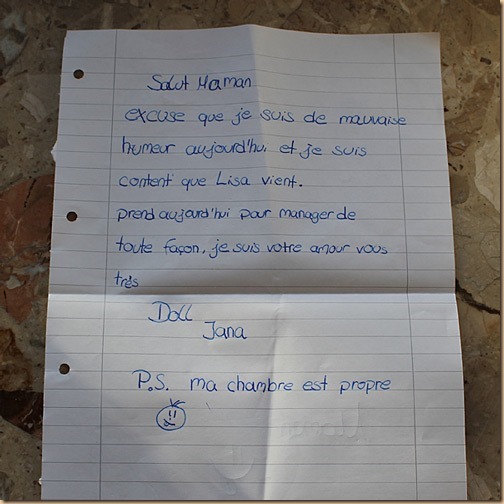 Salut Maman
excuse que je suis de mauvaise
humeur aujourd'hui et je suis
content que Lisa vient.
prend aujourd'hui pour manager de
toute façon, je suis votre amour vous
très
Doll
Jana
P.S. ma chambre est propre